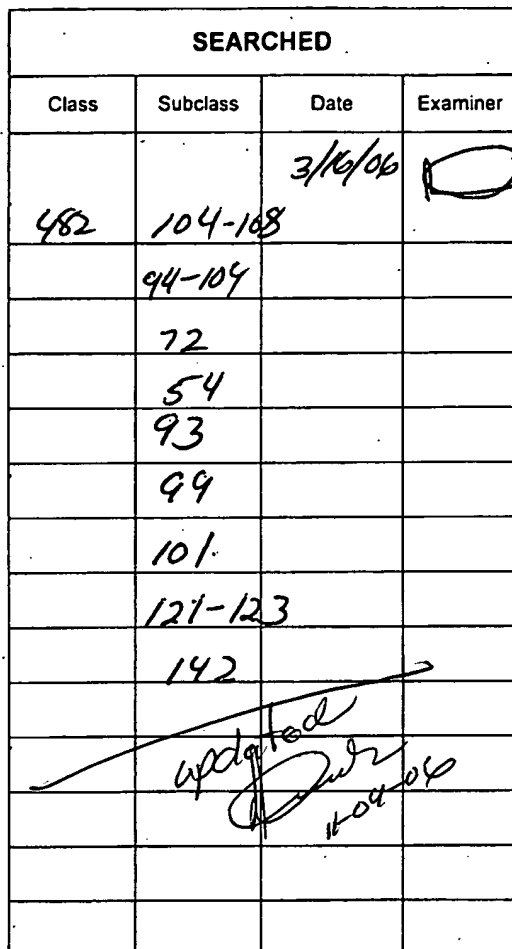 SEARCHED
Class Subclass Date Examiner
3/16/06
482 104-108
94-104
72
54
93
99
101
121-123
142
updated
11-04-06